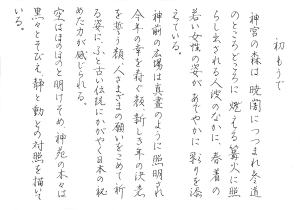 初もうで
神宮の森は、暁闇につつまれ参道
のところどころに燃える篝火に照
らし出される人波のなかに、春着の
若い女性の姿があでやかに彩りを添
えている。
神前の広場は真昼のように照明され
今年の幸を寿ぐ顔、新しき年の決意
を誓う顔、人さまざまの願いをこめて祈
る姿に、ふと古い伝統にかがやく日本の秘
めた力が感じられる。
空はほのぼのと明けそめ、神苑の木々は
黒々とそびえ、静と動との対照を描いて
いる。